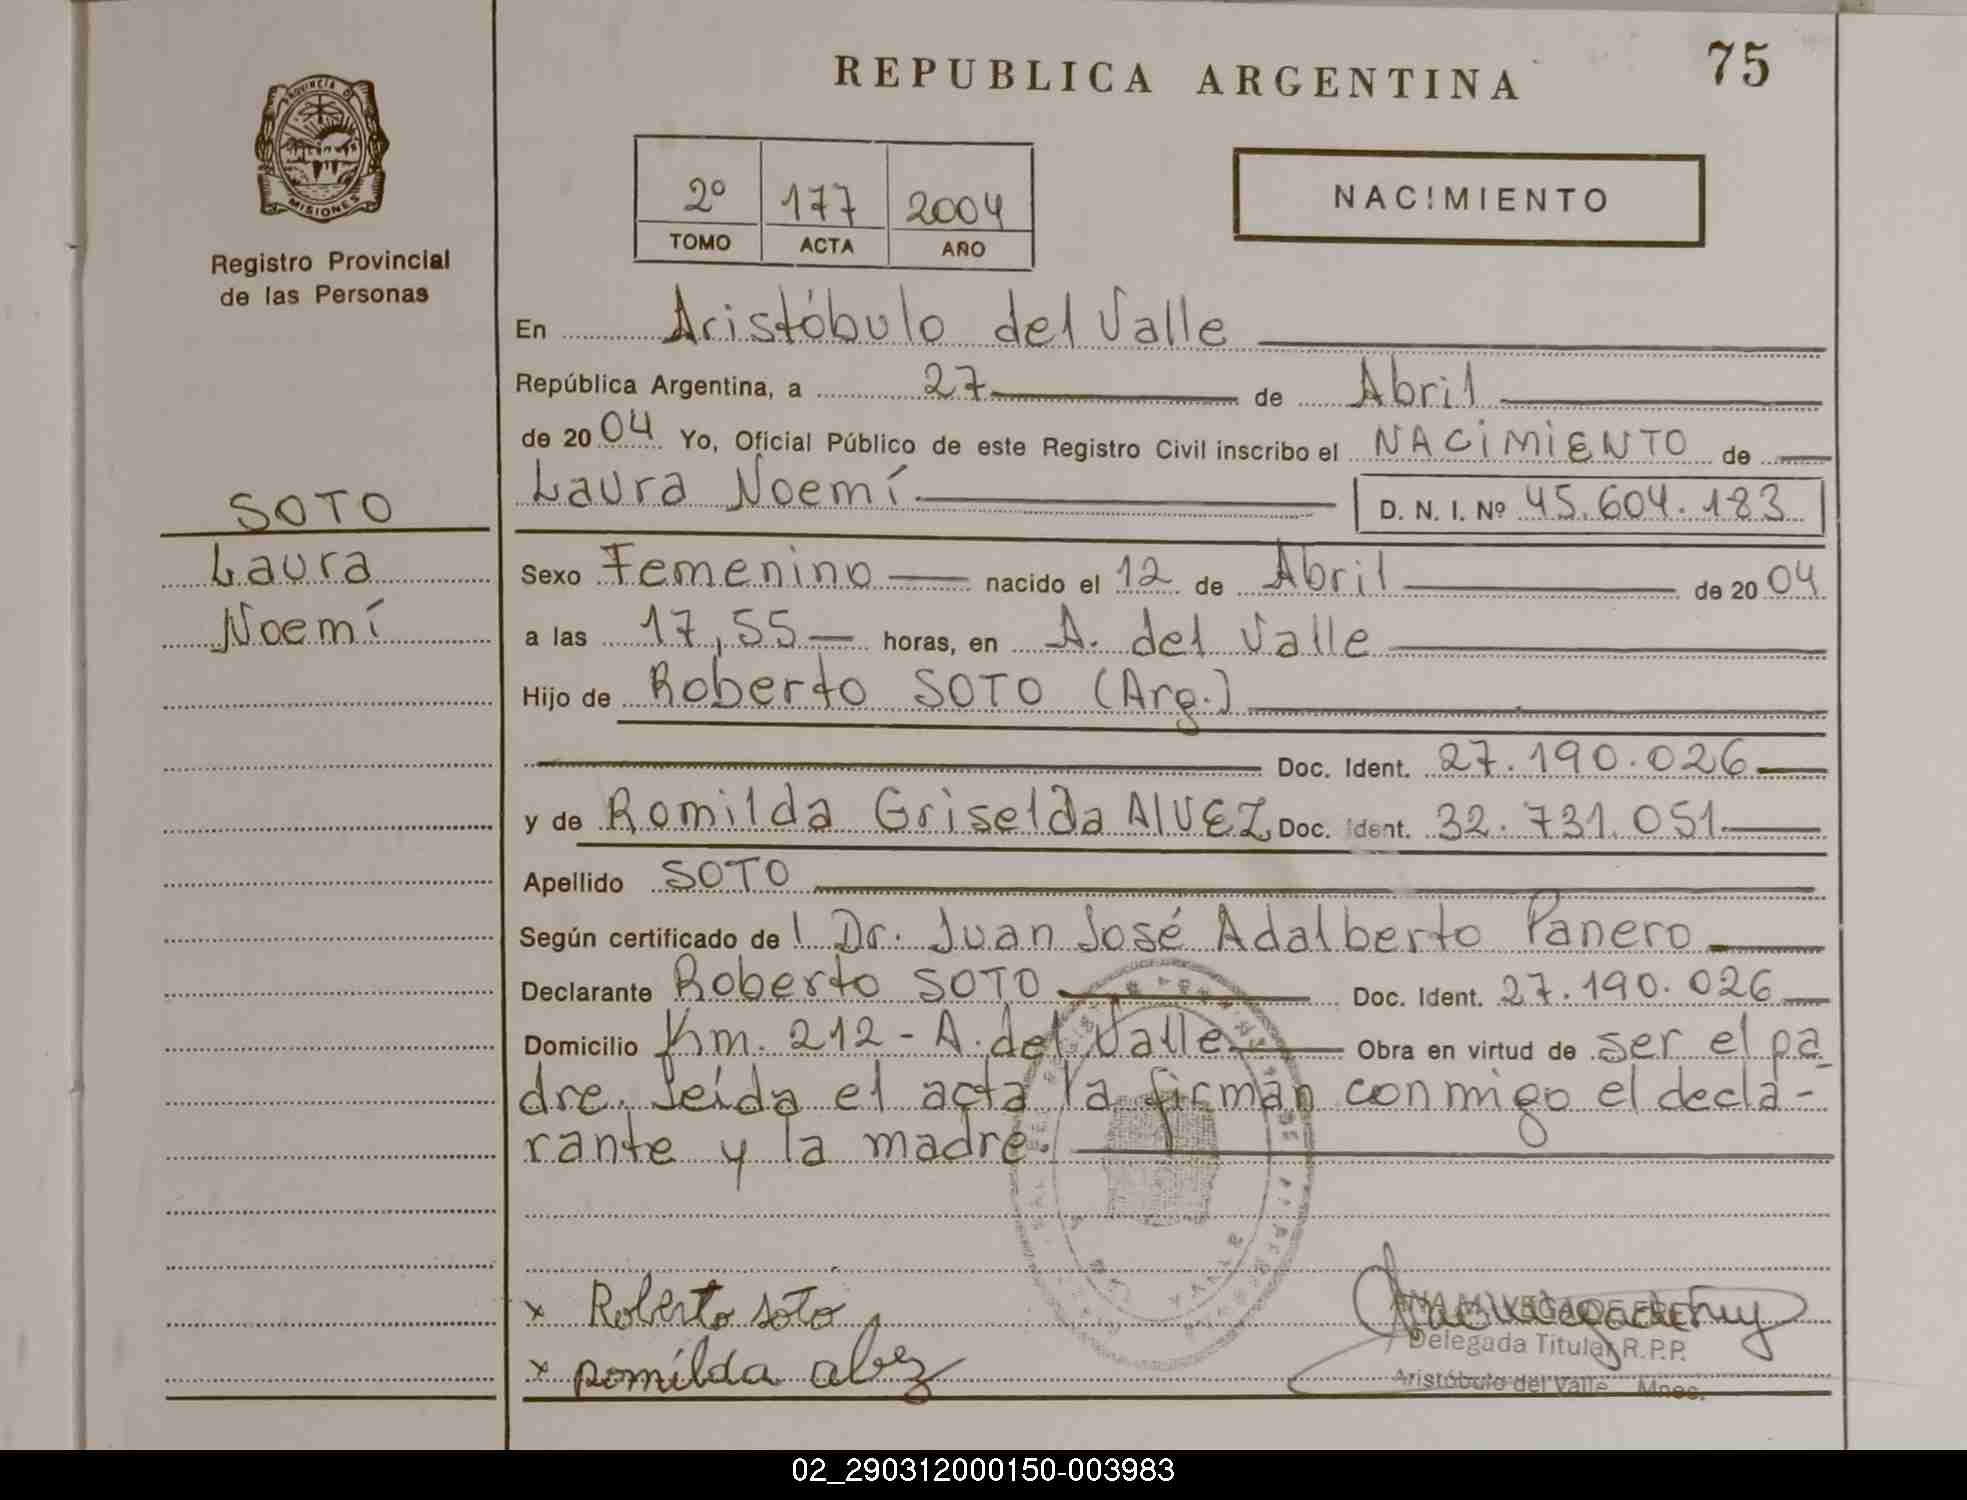 REPUBLICA ARGENTINA
75
PROVINCIA DE
MISIONES
Registro Provincial
de las Personas
2º 177 2004
TOMO ACTA AÑO
NACIMIENTO
En Aristóbulo del Valle
República Argentina, a 27 de Abril
de 2004 Yo, Oficial Público de este Registro Civil inscribo el NACIMIENTO de
Laura Noemí D. N. I. Nº 45.604.183
SOTO
Laura
Noemí
Sexo Femenino nacido el 12 de Abril de 2004
a las 17,55 horas, en A. del Valle
Hijo de Roberto SOTO (Arg.)
Doc. Ident. 27.190.026
y de Romilda Griselda AlVEZ Doc. Ident. 32.731.051
Apellido SOTO
Según certificado de l Dr. Juan José Adalberto Panero
Declarante Roberto SOTO Doc. Ident. 27.190.026
Domicilio Km. 212 - A. del Valle Obra en virtud de ser el pa
dre. Leída el acta la firman conmigo el decla-
rante y la madre.
x Roberto soto
x romilda abez
Delegada Titular R.P.P.
Aristóbulo del Valle Mnes.
02_290312000150-003983